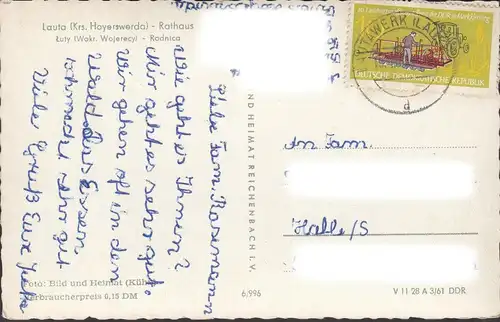 Lauta (Krs. Hoyerswerda) - Rathaus
Łuty (Wokr. Wojerecy) - Radnica
Liebe Fam.
Wie geht es Ihnen?
Mir geht es sehr gut.
Wir gehen oft in den
Wald. Das Essen
schmeckt sehr gut
Viele Grüße Eure
Foto: Bild und Heimat (Kühn)
Verbraucherpreis 0,15 DM
ND HEIMAT REICHENBACH I. V.
6/996
V 11 28 A 3/61 DDR
DEUTSCHE DEMOKRATISCHE REPUBLIK
d
An Fam.
Halle/S